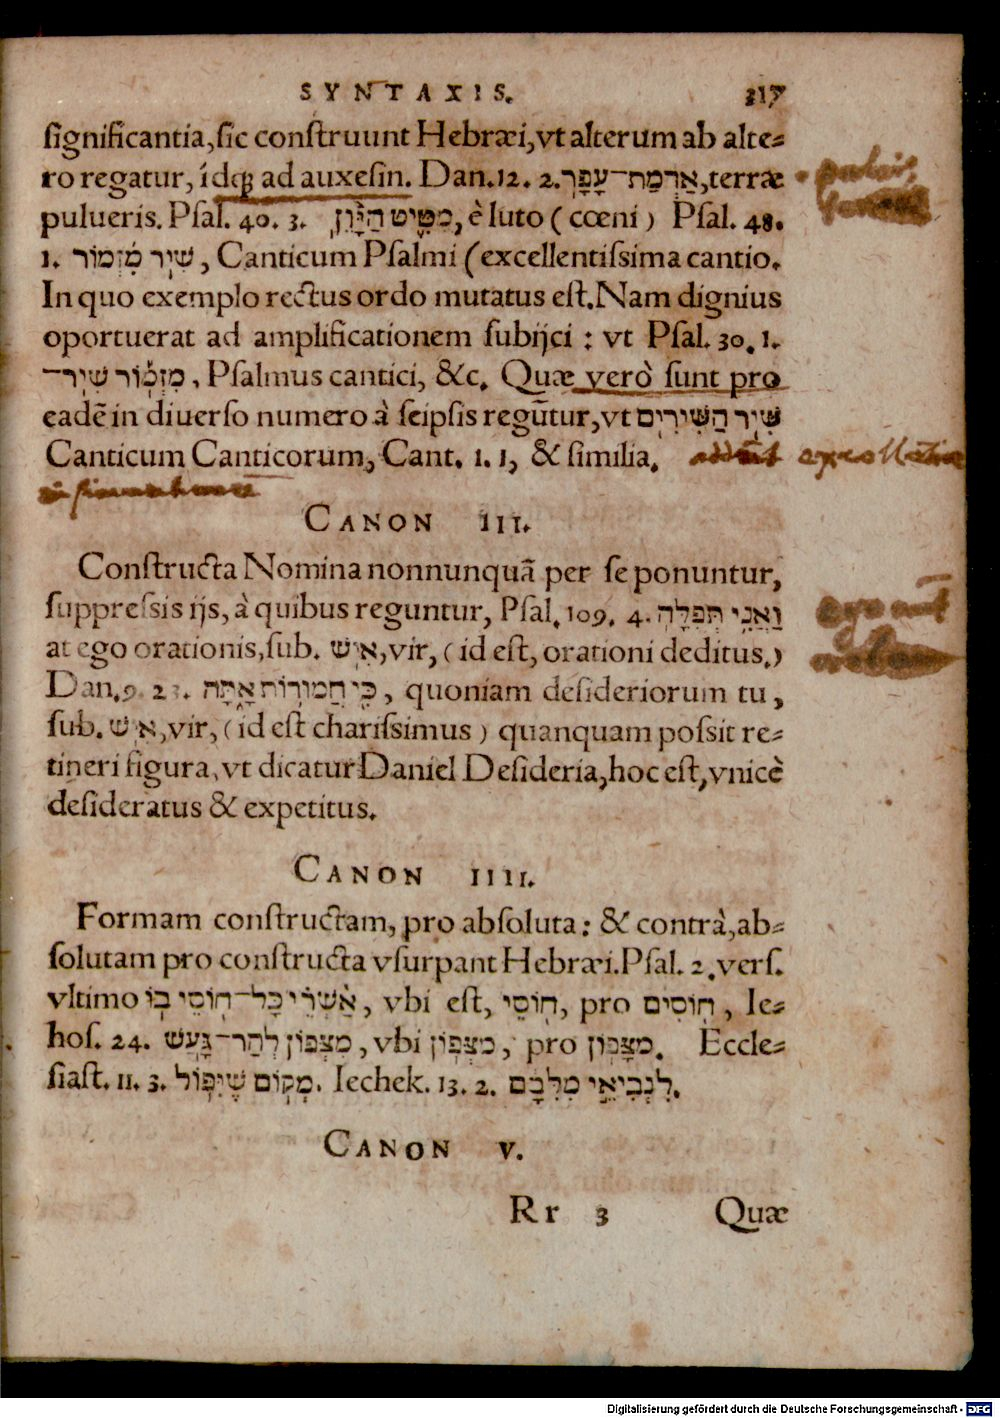 SYNTAXIS. 317
ſignificantia, ſic conſtruunt Hebræi, vt alterum ab alte-
ro regatur, idq́; ad auxeſin. Dan. 12. 2. אַדְמַת־עָפָר, terræ
pulueris. Pſal. 40. 3. מִטִּיט הַיָּוֵן, è luto (cœni) Pſal. 48.
1. שִׁיר מִזְמוֹר, Canticum Pſalmi (excellentiſsima cantio.
In quo exemplo rectus ordo mutatus eſt. Nam dignius
oportuerat ad amplificationem ſubijci: vt Pſal. 30. 1.
מִזְמוֹר שִׁיר־, Pſalmus cantici, &c. Quæ verò ſunt pro
eadē in diuerſo numero à ſeipſis regūtur, vt שִׁיר הַשִּׁירִים
Canticum Canticorum, Cant. 1. 1, & ſimilia.
CANON III.
Conſtructa Nomina nonnunquã per ſe ponuntur,
ſuppreſsis ijs, à quibus reguntur, Pſal. 109. 4. וַאֲנִי תְפִלָּה
at ego orationis, ſub. אִישׁ, vir, (id eſt, orationi deditus.)
Dan. 9. 23. כִּי חֲמוּדוֹת אָתָּה, quoniam deſideriorum tu,
ſub. אִישׁ, vir, (id eſt chariſsimus) quanquam poſsit re-
tineri figura, vt dicatur Daniel Deſideria, hoc eſt, vnicè
deſideratus & expetitus.
CANON IIII.
Formam conſtructam, pro abſoluta: & contrà, ab-
ſolutam pro conſtructa vſurpant Hebræi. Pſal. 2. verſ.
vltimo אַשְׁרֵי כָּל־חוֹסֵי בוֹ, vbi eſt, חוֹסֵי, pro חוֹסִים, Ie-
hoſ. 24. מִצְפוֹן לְהַר־גָּעַשׁ, vbi מִצְפוֹן, pro מִצָּפוֹן. Eccle-
ſiaſt. 11. 3. מְקוֹם שֶׁיִּפּוֹל. Iechek. 13. 2. לִנְבִיאֵי מִלִּבָּם.
CANON V.
Rr 3 Quæ
Digitalisierung gefördert durch die Deutsche Forschungsgemeinschaft - DFG